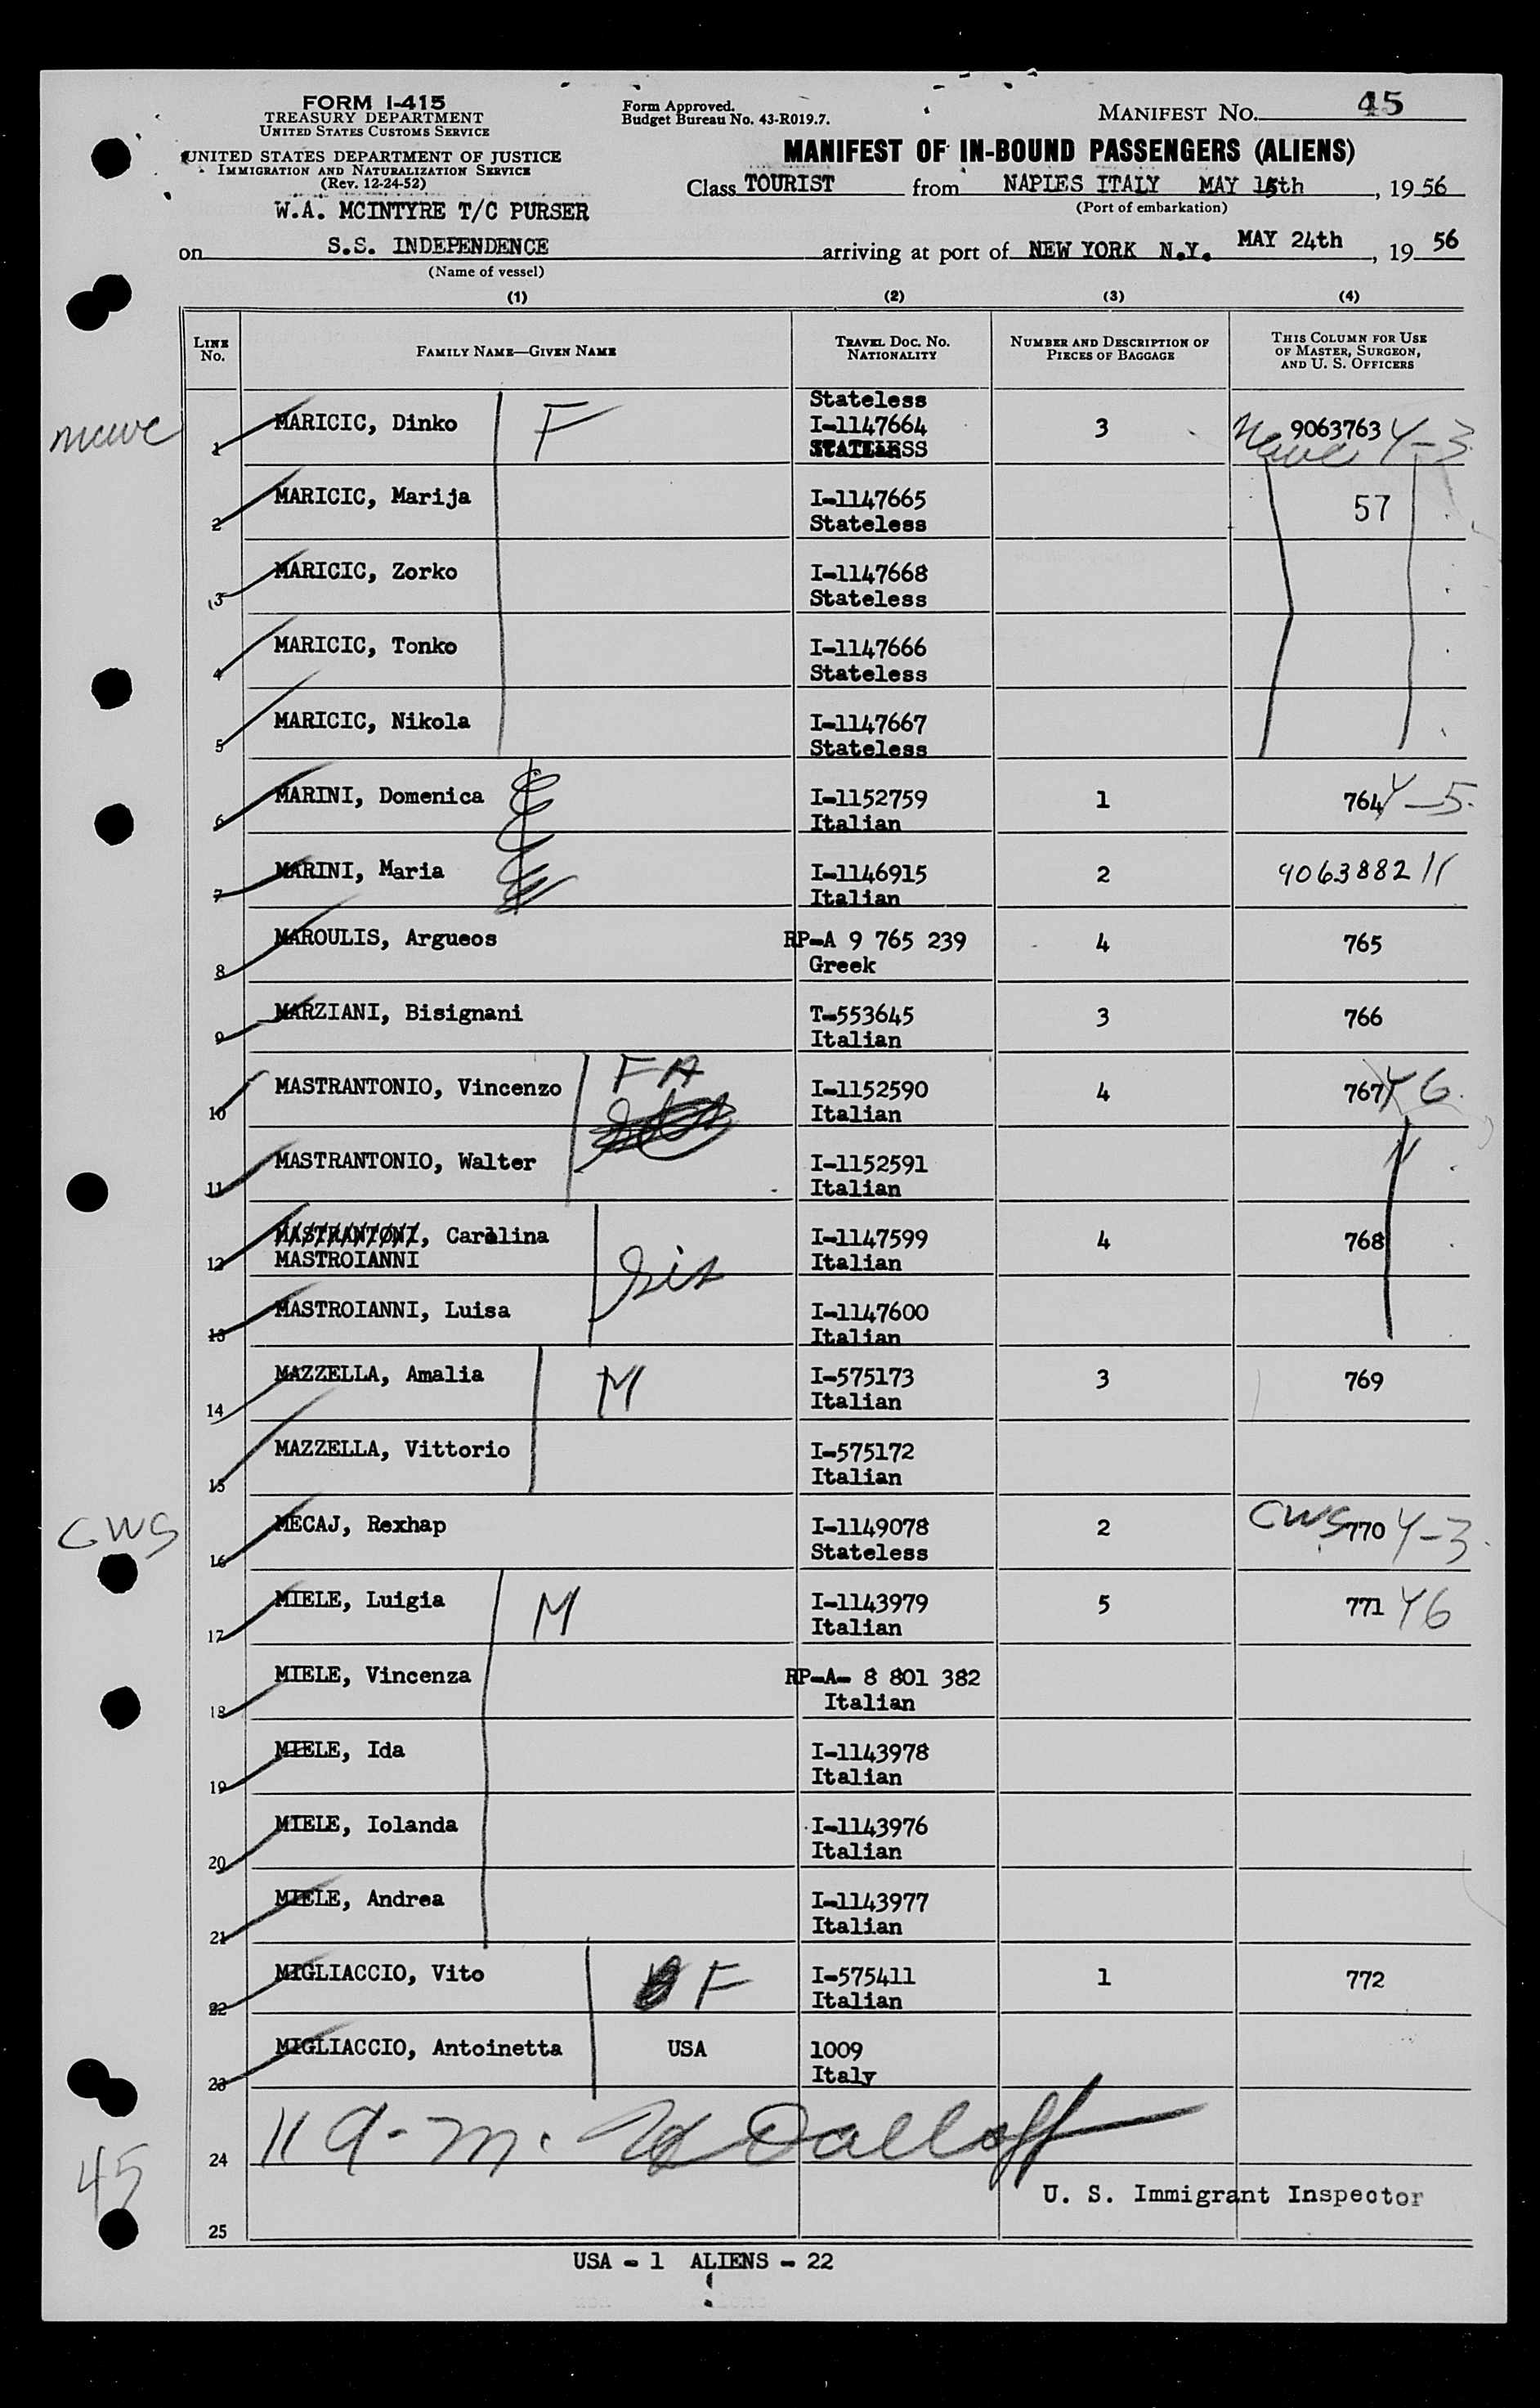 FORM I-415
TREASURY DEPARTMENT
UNITED STATES CUSTOMS SERVICE
UNITED STATES DEPARTMENT OF JUSTICE
IMMIGRATION AND NATURALIZATION SERVICE
(Rev. 12-24-52)
W.A. MCINTYRE T/C PURSER
Form Approved.
Budget Bureau No. 43-R019.7.
MANIFEST NO. 45
MANIFEST OF IN-BOUND PASSENGERS (ALIENS)
Class TOURIST from NAPLES ITALY MAY 15th, 19 56
(Port of embarkation)
on S.S. INDEPENDENCE arriving at port of NEW YORK N.Y. MAY 24th, 19 56
(Name of vessel)
(1) (2) (3) (4)
LINE No. FAMILY NAME—GIVEN NAME TRAVEL DOC. NO. NATIONALITY NUMBER AND DESCRIPTION OF PIECES OF BAGGAGE THIS COLUMN FOR USE OF MASTER, SURGEON, AND U. S. OFFICERS
Stateless
1 MARICIC, Dinko F I-1147664 3 9063763 Y-3
STATELESS
2 MARICIC, Marija I-1147665 57
Stateless
3 MARICIC, Zorko I-1147668
Stateless
4 MARICIC, Tonko I-1147666
Stateless
5 MARICIC, Nikola I-1147667
Stateless
6 MARINI, Domenica I-1152759 1 764 Y-5
Italian
7 MARINI, Maria I-1146915 2 9063882 11
Italian
8 MAROULIS, Argueos RP-A 9 765 239 4 765
Greek
9 MARZIANI, Bisignani T-553645 3 766
Italian
10 MASTRANTONIO, Vincenzo FA I-1152590 4 767 Y6
Italian
11 MASTRANTONIO, Walter I-1152591
Italian
12 MASTRANTONI, Carolina I-1147599 4 768
MASTROIANNI Sis Italian
13 MASTROIANNI, Luisa I-1147600
Italian
14 MAZZELLA, Amalia M I-575173 3 769
Italian
15 MAZZELLA, Vittorio I-575172
Italian
CWS 16 MECAJ, Rexhap I-1149078 2 CWS 770 Y-3
Stateless
17 MIELE, Luigia M I-1143979 5 771 Y6
Italian
18 MIELE, Vincenza RP-A- 8 801 382
Italian
19 MIELE, Ida I-1143978
Italian
20 MIELE, Iolanda I-1143976
Italian
21 MIELE, Andrea I-1143977
Italian
22 MIGLIACCIO, Vito F I-575411 1 772
Italian
23 MIGLIACCIO, Antoinetta USA 1009
Italy
24 11 a.m.
45
U. S. Immigrant Inspector
25
USA - 1 ALIENS - 22